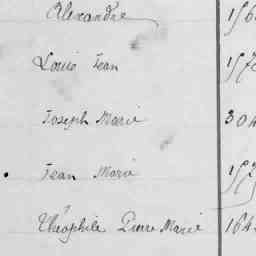 Alexandre
Louis Jean
Joseph Marie 304
Jean Marie
Théophile Pierre Marie 164